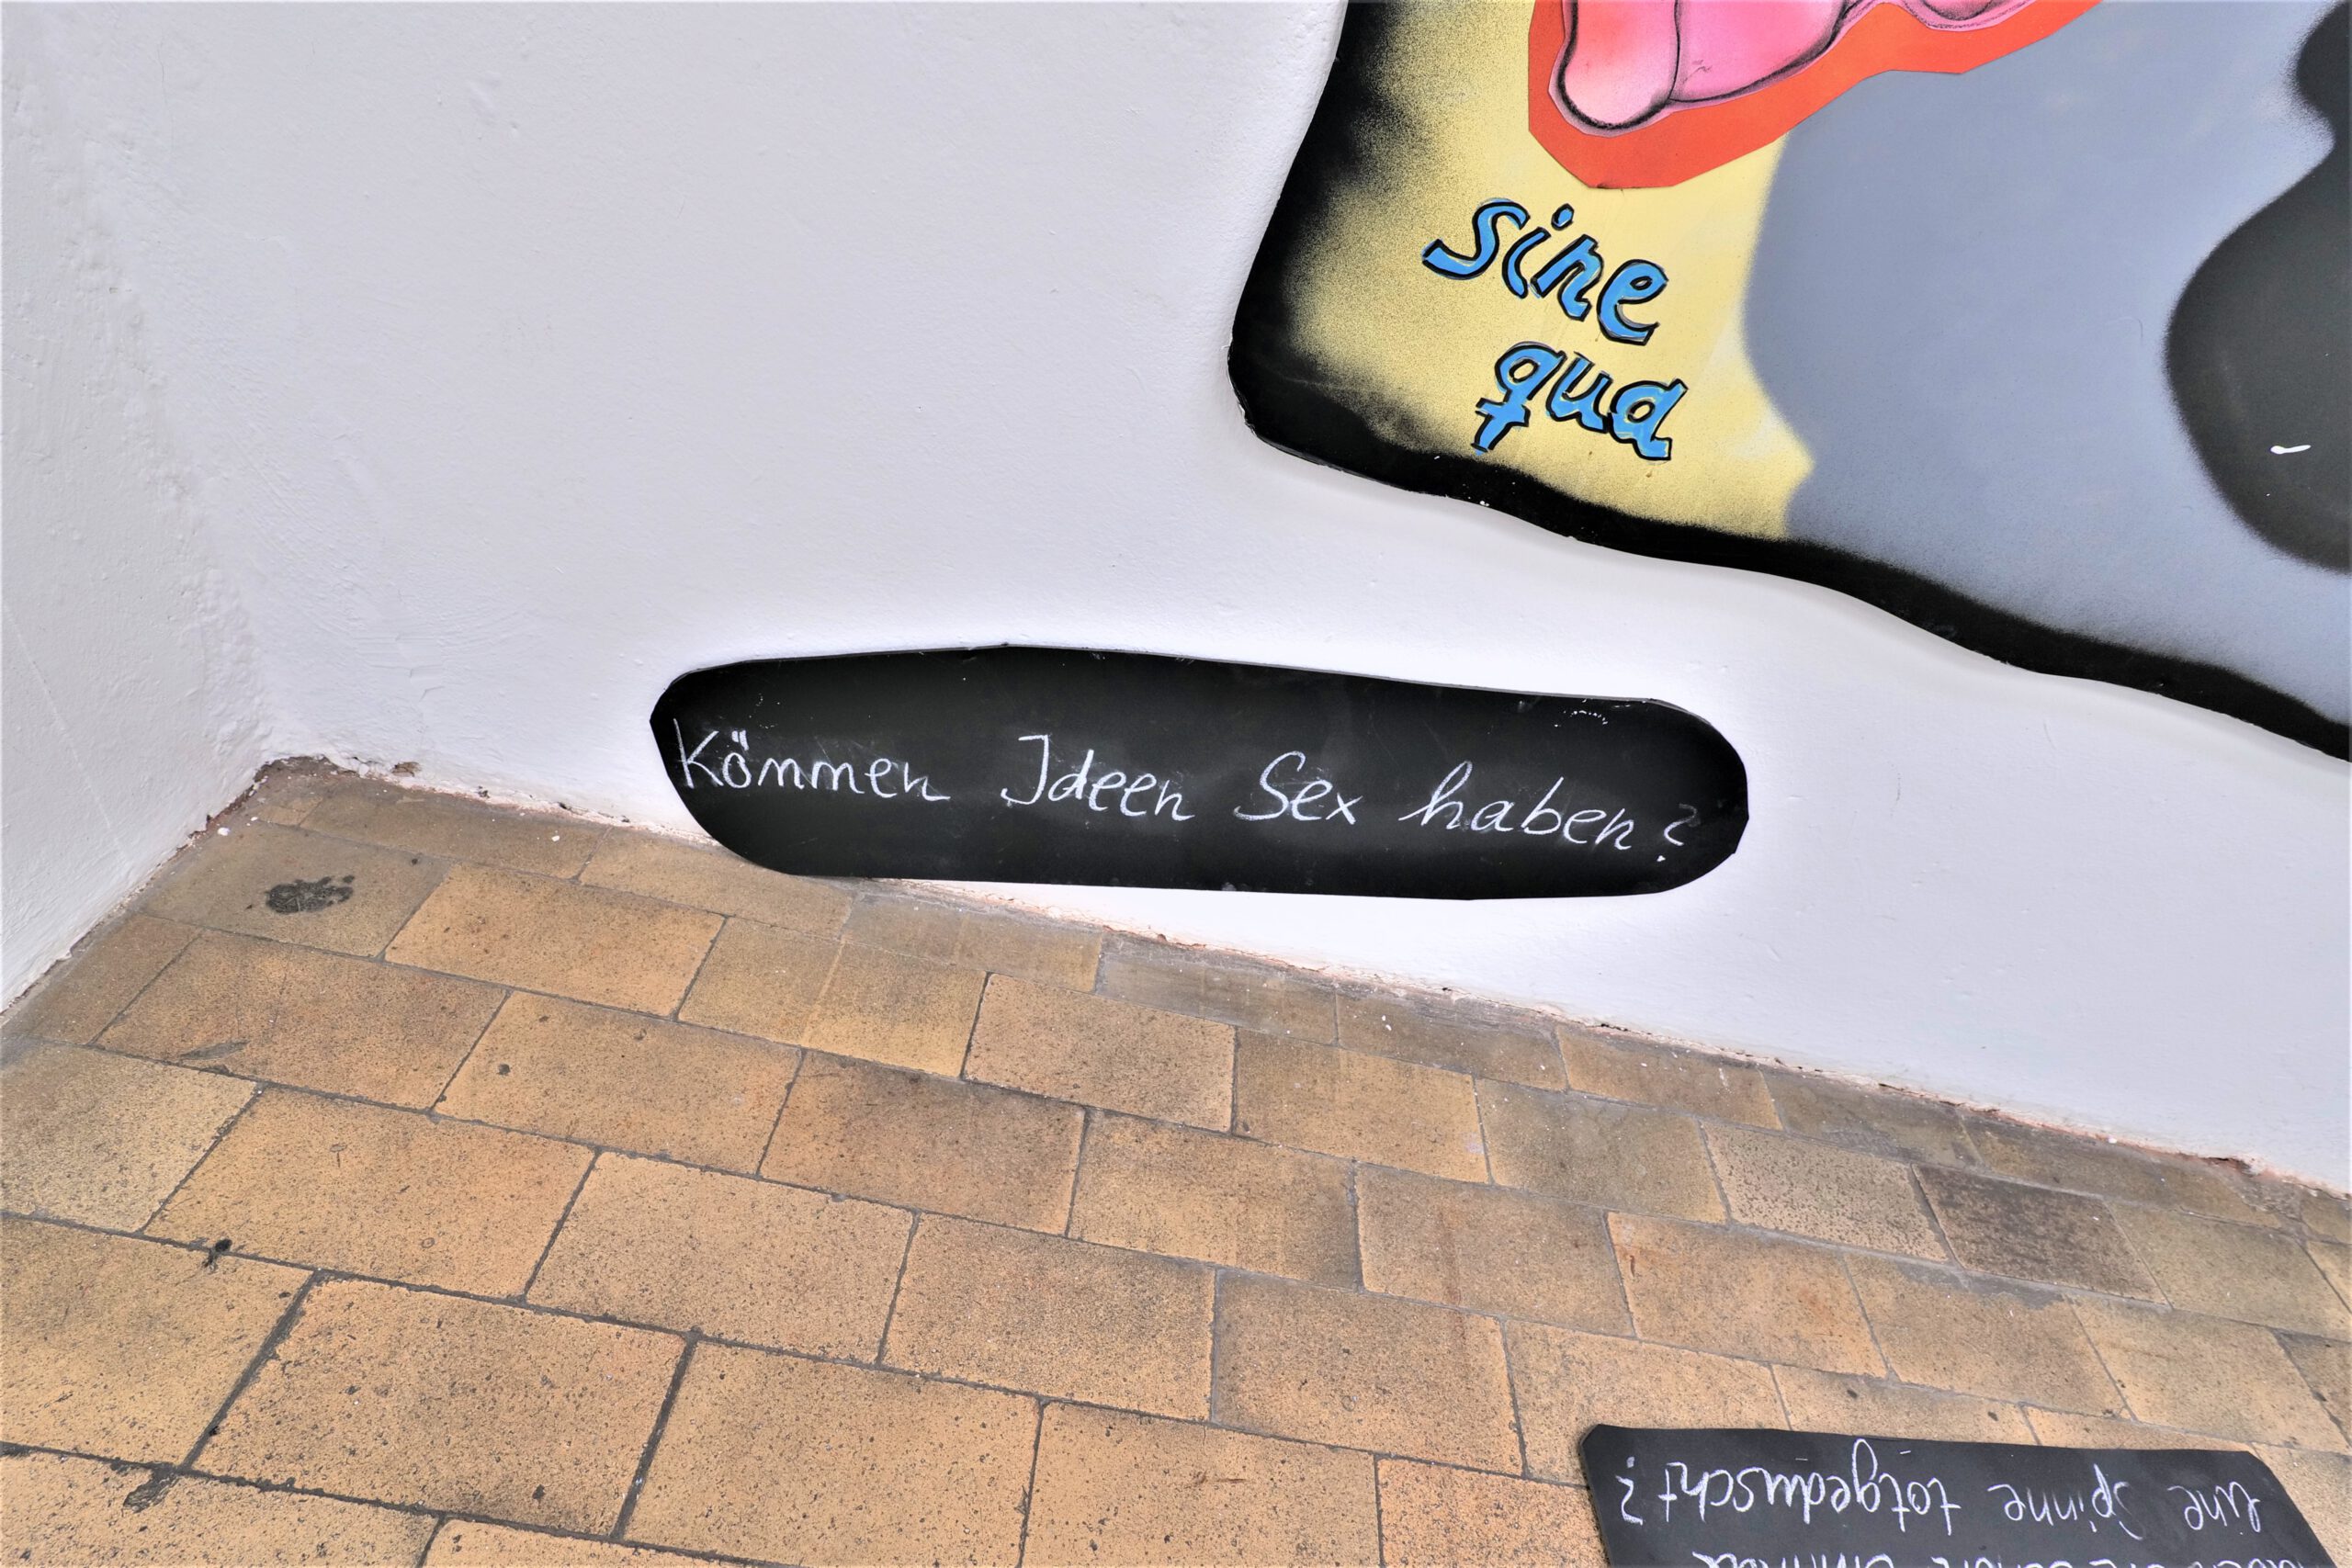 sine
qua
Kömmen Ideen Sex haben?
eine Spinne totgeduscht?